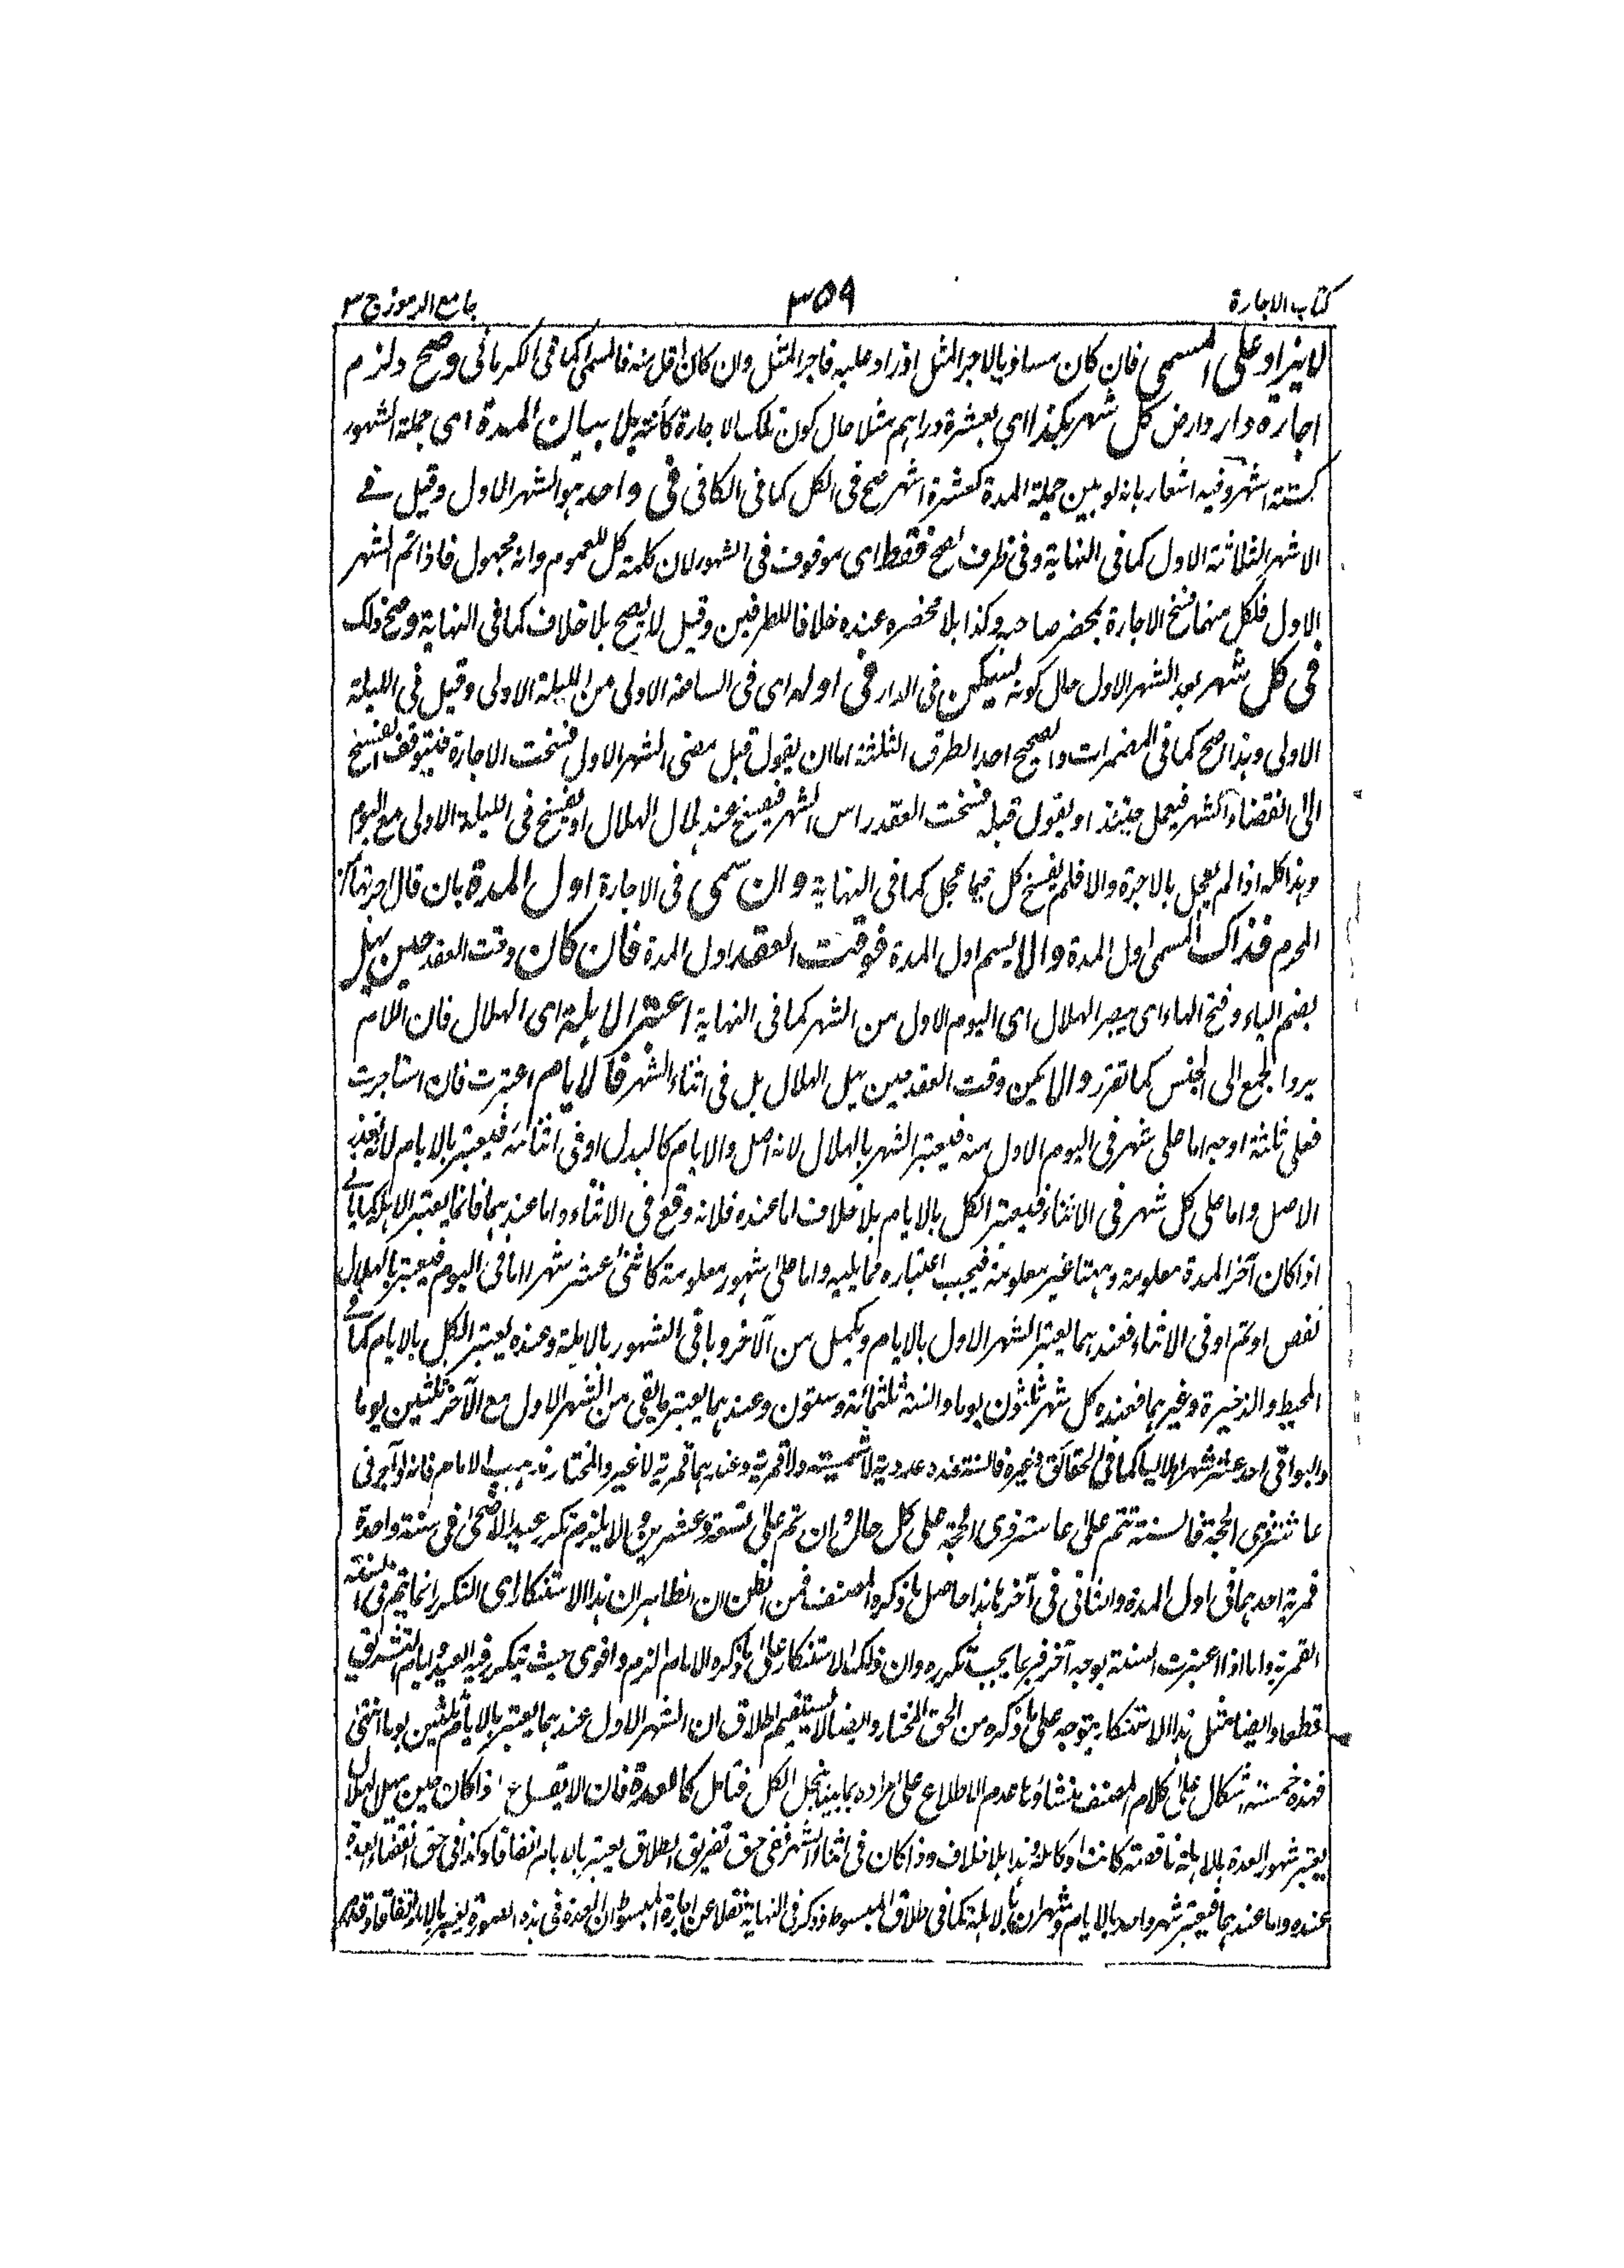 كتاب الاجارة ٣٥٩ جامع الرموز ج ٣
لا يزاد على المسمى فان كان مساويا لاجر المثل او زاد عليه فاجر المثل وان كان اقل منه فالمسمى كما فى الكرمانى وصح ولزم
اجارة دار وارض كل شهر بكذا اى بعشرة دراهم مثلا حال كون تلك الاجارة كائنة بلا بيان المدة اى جملة الشهور
كستة اشهر وفيه اشعار بانه لو بين جملة المدة كعشرة اشهر صح فى الكل كما فى الكافى فى واحد هو الشهر الاول وقيل فى
الاشهر الثلاثة الاول كما فى النهاية وفى ظرف صح فقط اى موقوف فى الشهور لان كلمة كل للعموم وانه مجهول فاذا تم الشهر
الاول فلكل منهما فسخ الاجارة بمحضر صاحبه وكذا بلا محضره عنده خلافا للطرفين وقيل لا يصح بلا خلاف كما فى النهاية وصح ذلك
فى كل شهر بعد الشهر الاول حال كونه يسكن فى الدار فى اوله اى فى الساعة الاولى من الليلة الاولى وقيل فى الليلة
الاولى وهذا اصح كما فى المضمرات والصحيح احد الطرق الثلثة اما ان يقول قبل مضى الشهر الاول فسخت الاجارة فيتوقف الفسخ
الى انقضاء الشهر فيعمل حينئذ او يقول قبله فسخت العقد راس الشهر فيفسخ عند اهلال الهلال او يفسخ فى الليلة الاولى مع اليوم
وهذا كله اذا لم يعجل بالاجرة والا فلم يفسخ كل فيما عجل كما فى النهاية وان سمى فى الاجارة اول المدة بان قال اجرتها من
المحرم فذاك المسمى اول المدة والا يسم اول المدة فوقت العقد اول المدة فان كان وقت العقد حين يهل
بضم الياء وفتح الهاء اى يبصر الهلال اى اليوم الاول من الشهر كما فى النهاية اعتبر الاهلة اى الهلال فان اللام
يرد الجمع الى الجنس كما تقرر والا يكن وقت العقد حين يهل الهلال بل فى اثناء الشهر فالايام اعتبرت فان استاجرت
فعلى ثلثة اوجه اما على شهر فى اليوم الاول منه فيعتبر الشهر بالهلال لانه اصل والايام كالبدل او فى اثنائه فيعتبر بالايام لانه تعذر
الاصل واما على كل شهر فى الاثناء فيعتبر الكل بالايام بلا خلاف اما عنده فلانه وقع فى الاثناء واما عندهما فانما يعتبر الاهلة
اذا كان آخر المدة معلومة وههنا غير معلومة فيجب اعتباره فما يليه واما على شهور معلومة كاثنى عشر شهرا اما فى اليوم فيعتبر بالهلال
نقص او تم او فى الاثناء فعندهما يعتبر الشهر الاول بالايام ويكمل من الآخر وباقى الشهور بالاهلة وعنده يعتبر الكل بالايام كما فى
المحيط والذخيرة وغيرهما فعنده كل شهر ثلثون يوما والسنة ثلثمائة وستون وعندهما يعتبر ما بقى من الشهر الاول مع الآخر ثلثين يوما
والبواقى احد عشر شهرا هلاليا كما فى الحقائق وغيره فالسنة عنده عددية لا شمسية ولا قمرية وعندهما قمرية لا غير والمختار مذهب الامام فانه لو آجر فى
عاشر ذى الحجة فالسنة تتم على عاشر ذى الحجة على كل حال وان تم على تسعة وعشرين والا يلزم تكرر عيد الاضحى فى سنة واحدة
قمرية احدهما فى اول المدة والثانى فى آخرها هذا حاصل ما ذكره المصنف فمن الظن ان الظاهر ان هذا الاستنكار اى التكرر انما يتم فى السنة
القمرية واما اذا اعتبرت السنة بوجه آخر فربما يجب تكرره وان ذلك الاستنكار على ما ذكره الامام الزم واقوى حيث يتكرر فيه العيد وايام التشريق
قطعا وايضا مثل هذا الاستنكار يتوجه على ما ذكره من الحق المختار وايضا لا يستقيم اطلاق ان الشهر الاول عندهما يعتبر بالايام ثلثين يوما انتهى
فهذه خمسة اشكال على كلام المصنف منشاؤها عدم الاطلاع على مراده بما بينا ينحل الكل فتامل كالعدة فان الايقاع اذا كان حين يهل الهلال
يعتبر شهور العدة بالاهلة ناقصة كانت او كاملة هذا بلا خلاف واذا كان فى اثناء الشهر ففى حق تفريق الطلاق يعتبر بالايام اتفاقا وكذا فى حق انقضاء العدة
عنده واما عندهما فيعتبر شهر واحد بالايام وشهران بالاهلة كما فى طلاق المبسوط وذكر فى النهاية نقلا عن اجارة المبسوط ان العدة فى هذه الصورة يعتبر بالايام اتفاقا